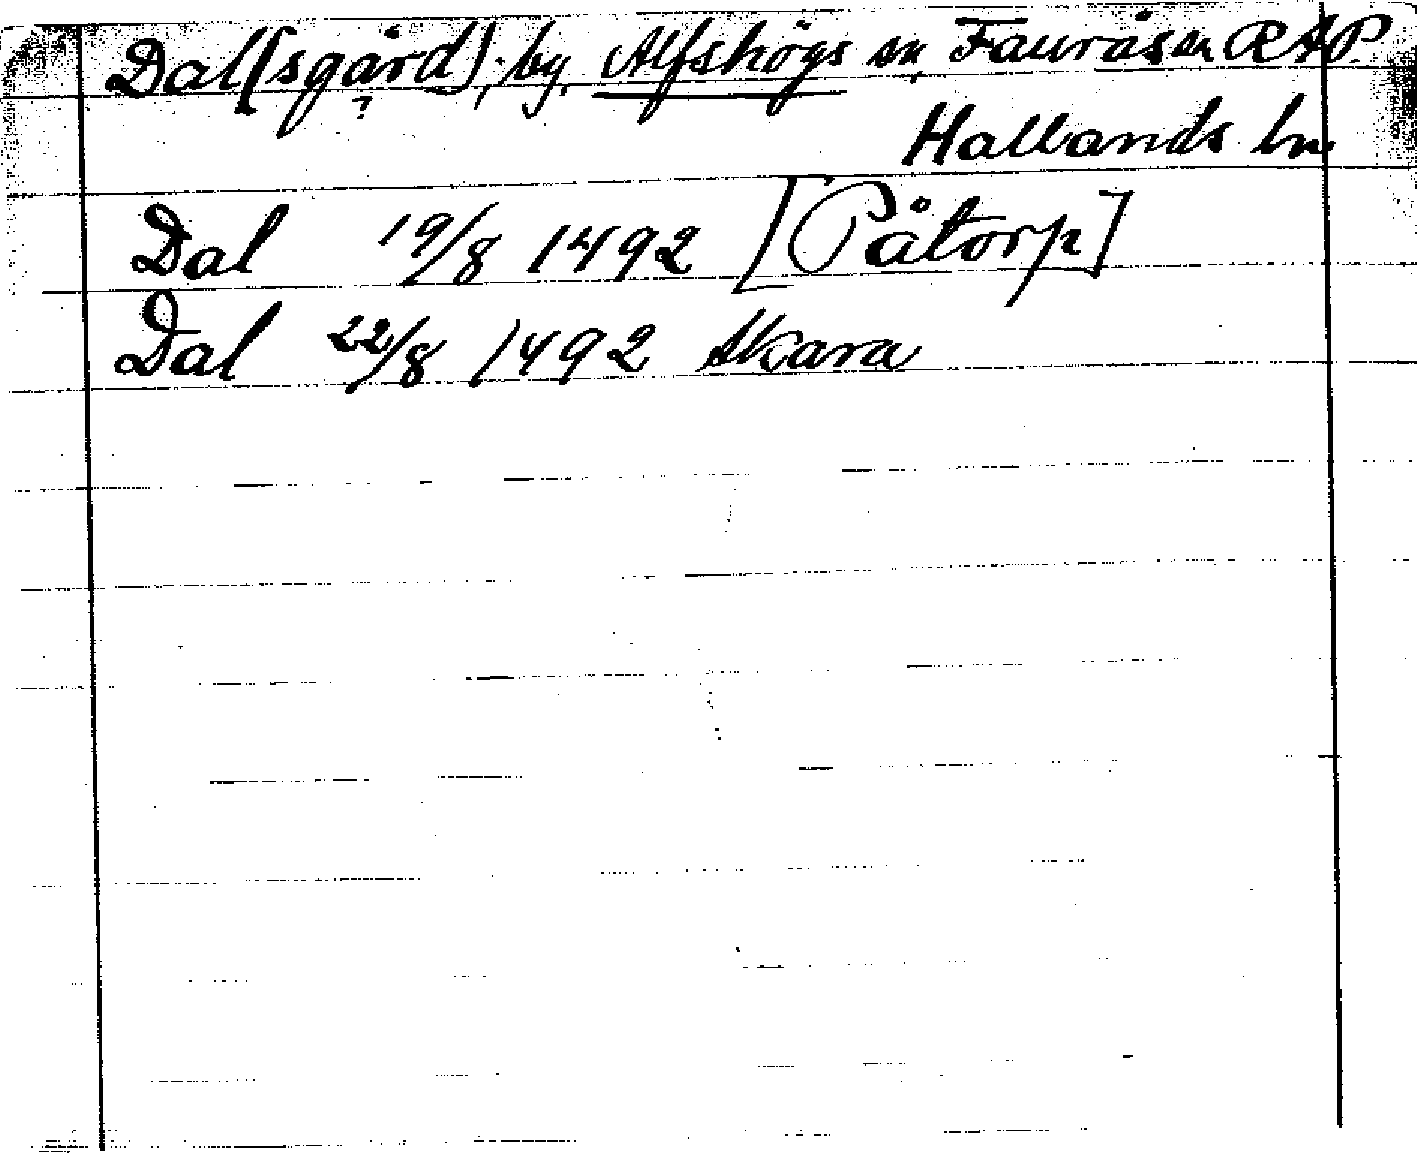 Dal[sgård], by, Alfshögs sn, Faurås sn RAP.
?
Hallands ln
Dal 19/8 1492 [Påtorp]
Dal 22/8 1492 Skara